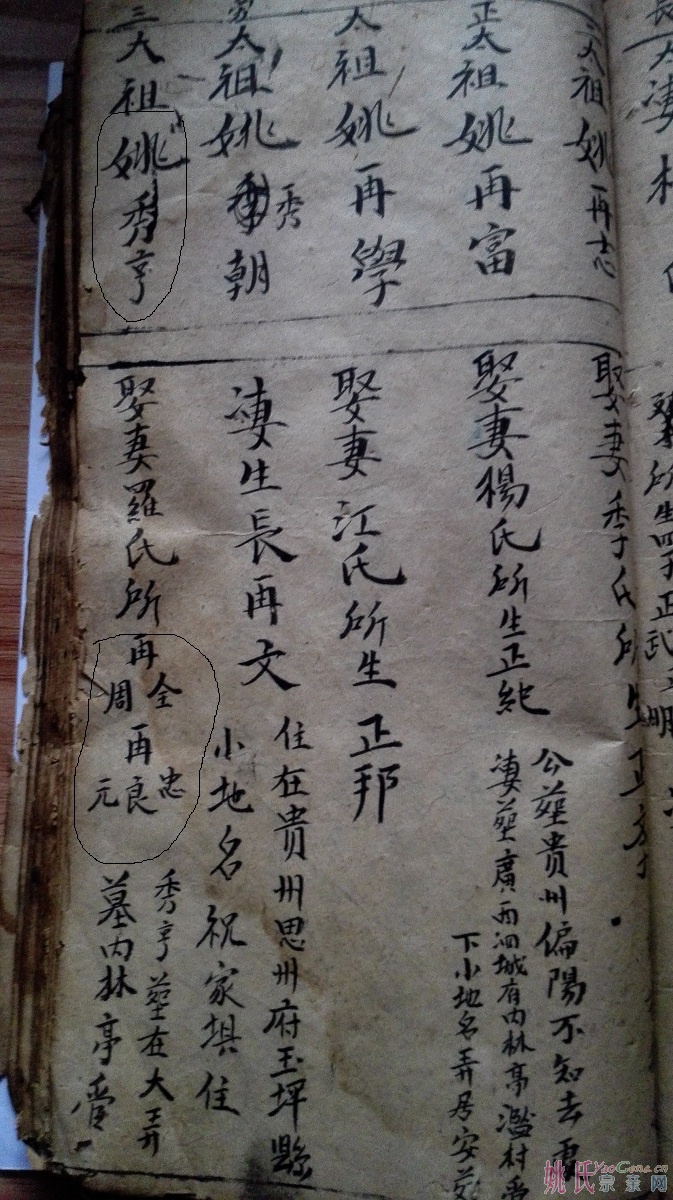 長
太
妻
二太祖姚再志
娶妻季氏所生正
正太祖姚再富
娶妻楊氏所生正紀
公塟貴州偏陽不知去
妻塟廣西泗城有内林亭濫村
下小地名弄居安
太祖姚再學
娶妻江氏所生正邦
太祖姚秀朝
妻生長再文
住在貴州思州府玉坪縣
小地名祝家垻住
三大祖姚秀亨
娶妻羅氏所再全周再忠良元
秀亨塟在大弄
墓内林亭
姚氏宗亲网
YaoGens.cn